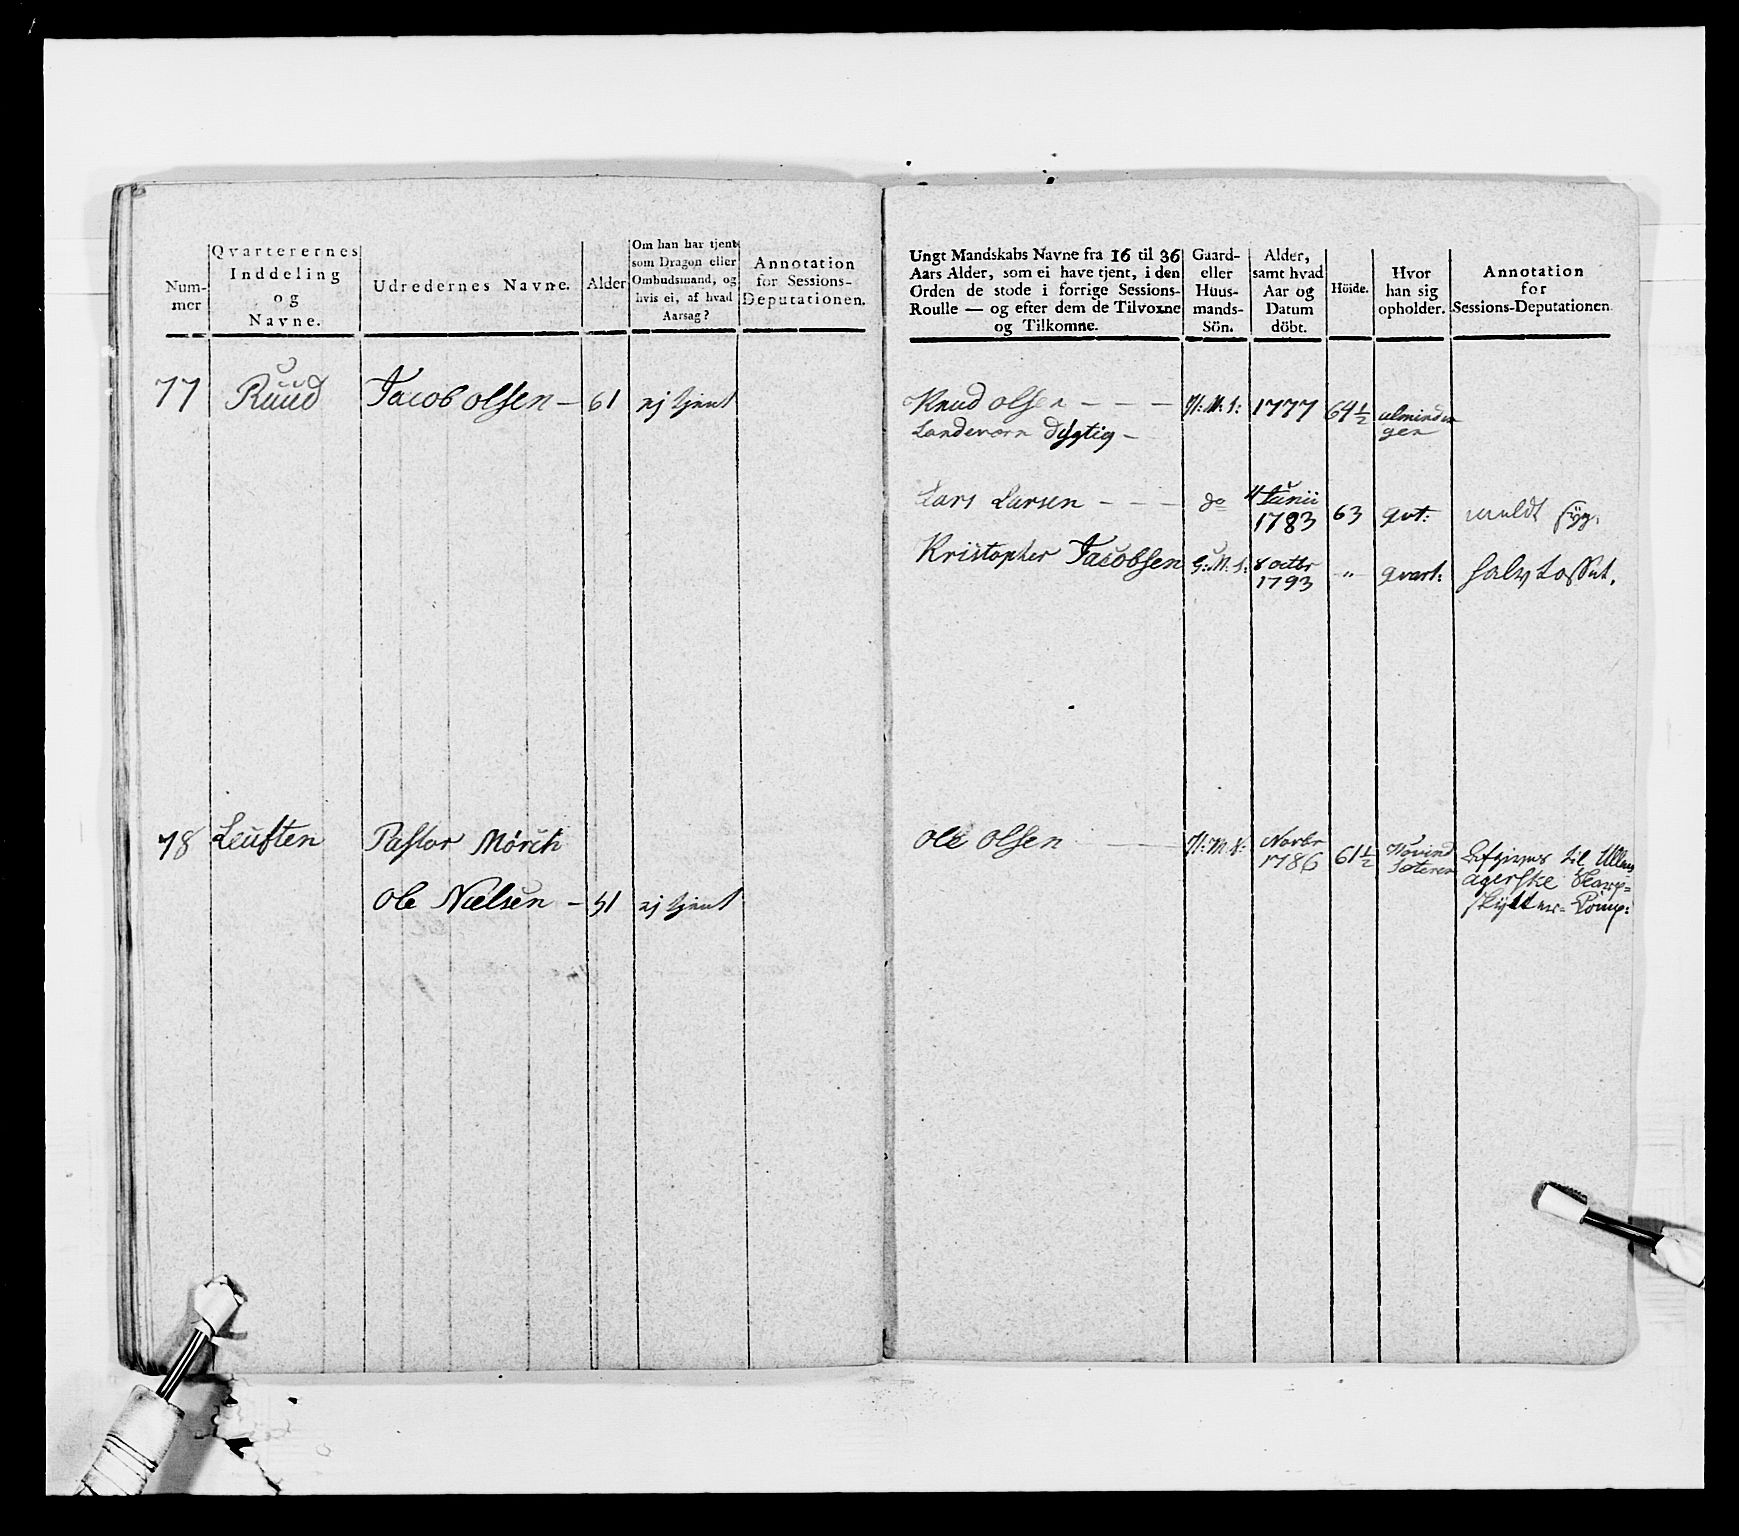 Num-
mer
Qvarterernes
Inddeling
og
Navne.
Udredernes Navne.
Alder
Om han har tjent
som Dragon eller
Ombudsmand, og
hvis ei, af hvad
Aarsag?
Annotation
for Sessions-
Deputationen.
Ungt Mandskabs Navne fra 16 til 36
Aars Alder, som ei have tjent, i den
Orden de stode i forrige Sessions-
Roulle — og efter dem de Tilvoxne
og Tilkomne.
Gaard-
eller
Huus-
mands-
Sön.
Alder,
samt hvad
Aar og
Datum
döbt.
Höide.
Hvor
han sig
opholder.
Annotation
for
Sessions-Deputationen.
77 Ruud Jacob olsen — 61 ej tjent
Knud olsen — — — H: M: S: 1777 64½ alminden
Landeværn dygtig — gen
Lars Larsen — — — do 4 Junii
1783 63 qvt: meldt syg.
Kristopher Jacobsen G: M: S: 8 octbr
1793 — " — qvart: halv tosset.
78 Leuften Pastor Mørch
ole Nielsen — 51 ej tjent
ole olsen — H: M: S: Novbr
1786 61½ Sæteren
Afgives til Ullens
agerske Skarp=
skytter= Comp: